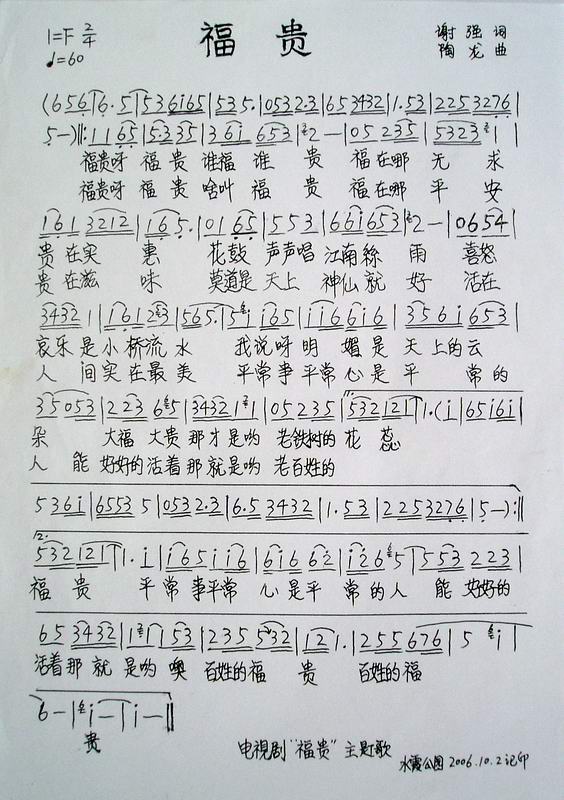 福 贵
1=F 2/4
♩=60
谢强 词
陶龙 曲
(6 5 6 | 6. 5 | 5 3 6 i 6 5 | 5 3 5. | 0 5 3 2. 3 | 6 5 3 4 3 2 | 1. 5 3 | 2 2 5 3 2 7 6 |
5 -) ‖: 1 1 6 5 | 5. 3 3 5 | 3 6 i 6 5 3 | 2 — | 0 5 2 3 5 | 5 3 2 3 1 |
福贵呀 福 贵 谁福 谁 贵 福在哪 无 求
福贵呀 福 贵 啥叫 福 贵 福在哪 平 安
1 6 1 3 2 1 2 | 1 6 5. | 0 1 6 5 | 5 5 3 | 6 6 i 6 5 3 | 2 — | 0 6 5 4 |
贵 在实 惠 花鼓 声声唱 江南丝 雨 喜怒
贵 在滋 味 莫道是 天上 神仙就 好 活在
3 4 3 2 1 | 1 6 1 2 3 | 5 6 5. | 5 i 6 5 | i i 6 6 i 6 | 3 5 6 i 6 5 3 |
哀乐是小桥流水 我说呀明 媚是 天上的云
人 间实在最美 平常事平常 心是平 常的
3 5 0 5 3 | 2 2 3 6 5 | 3 4 3 2 1 1 | 0 5 2 3 5 | 5 3 2 1 2 1 | 1. (i | 6 5 i 6 i |
朵 大福 大贵 那才是哟 老铁树的花 蕊
人 能 好好的活着那就是哟 老百姓的
5 3 6 i | 6 5 5 3 5 | 0 5 3 2. 3 | 6. 5 3 4 3 2 | 1. 5 3 | 2 2 5 3 2 7 6 | 5 -) :‖
2. 5 3 2 1 2 1 | 1. i | i 6 5 i i 6 | 6 i 6 6 2 | i 2 6 5 | 5 5 3 2 2 3 |
福 贵 平 常事平常 心是平 常的人 能 好好的
6 5 3 4 3 2 | 1 1 i 5 3 | 2 3 5 5 3 2 | 1 2 1. | 2 5 5 6 7 6 | 5 i |
活着那就 是哟 噢 百姓的福 贵 百姓的福
6 — | i — | i — ‖
贵
电视剧“福贵”主题歌
水霞公园 2006.10.2 记印